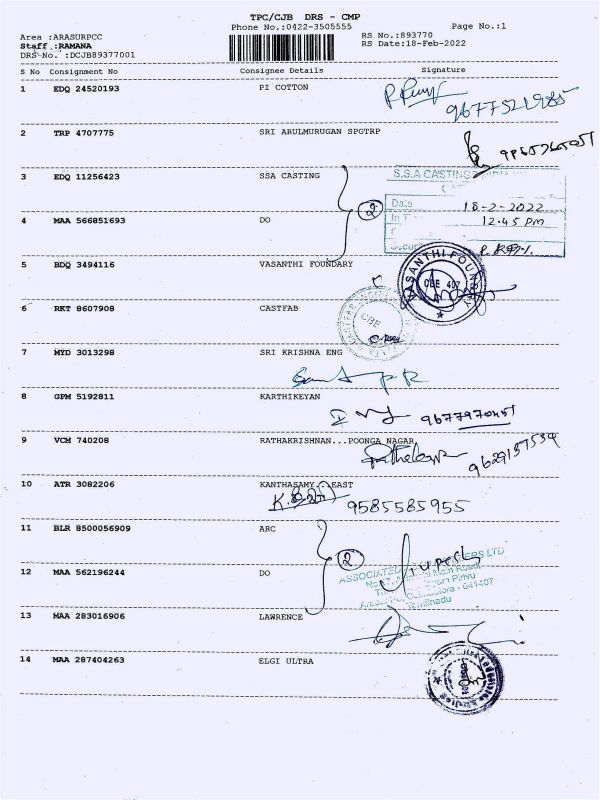 TPC/CJB DRS - CMP
Phone No.:0422-3505555
Page No.:1
Area :ARASURPCC
RS No.:893770
Staff :RAMANA
RS Date:18-Feb-2022
DRS No. :DCJB89377001
S No Consignment No Consignee Details Signature
1 EDQ 24520193 PI COTTON
2 TRP 4707775 SRI ARULMURUGAN SPGTRP
3 EDQ 11256423 SSA CASTING
S.S.A CASTING
2
Date 18-2-2022
12.45 PM
4 MAA 566851693 DO
5 BDQ 3494116 VASANTHI FOUNDARY
VASANTHI FOUNDRY
CBE 407
6 RKT 8607908 CASTFAB
CBE
7 MYD 3013298 SRI KRISHNA ENG
8 GPM 5192811 KARTHIKEYAN
9 VCM 740208 RATHAKRISHNAN...POONGA NAGAR,
9629137534
10 ATR 3082206 KANTHASAMY...EAST
9585585955
11 BLR 8500056909 ARC
2
12 MAA 562196244 DO
Coimbatore - 641407
Tamilnadu
13 MAA 283016906 LAWRENCE
14 MAA 287404263 ELGI ULTRA